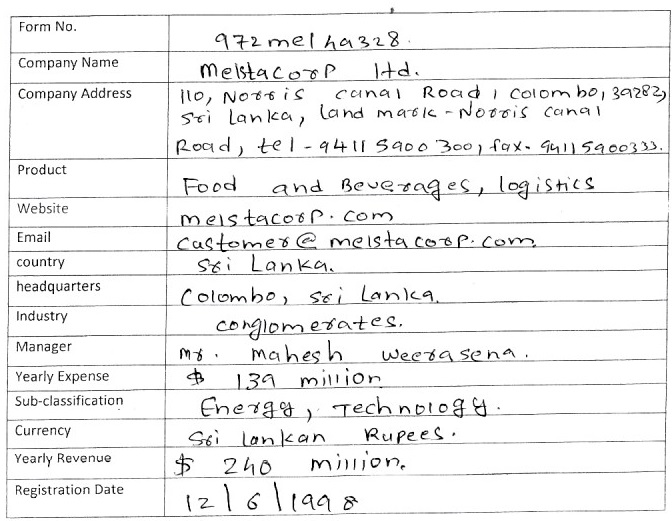 Form No. 972melha328.
Company Name Melstacorp ltd.
Company Address 110, Norris canal Road, Colombo, 39282,
Sri Lanka, Land mark - Norris canal
Road, tel - 94115900300, fax - 94115900333.
Product Food and Beverages, logistics
Website melstacorp.com
Email Customer@melstacorp.com.
country Sri Lanka.
headquarters Colombo, Sri Lanka.
Industry conglomerates.
Manager Mr. Mahesh Weerasena.
Yearly Expense $ 139 million
Sub-classification Energy, Technology.
Currency Sri lankan Rupees.
Yearly Revenue $ 240 million.
Registration Date 12/6/1998